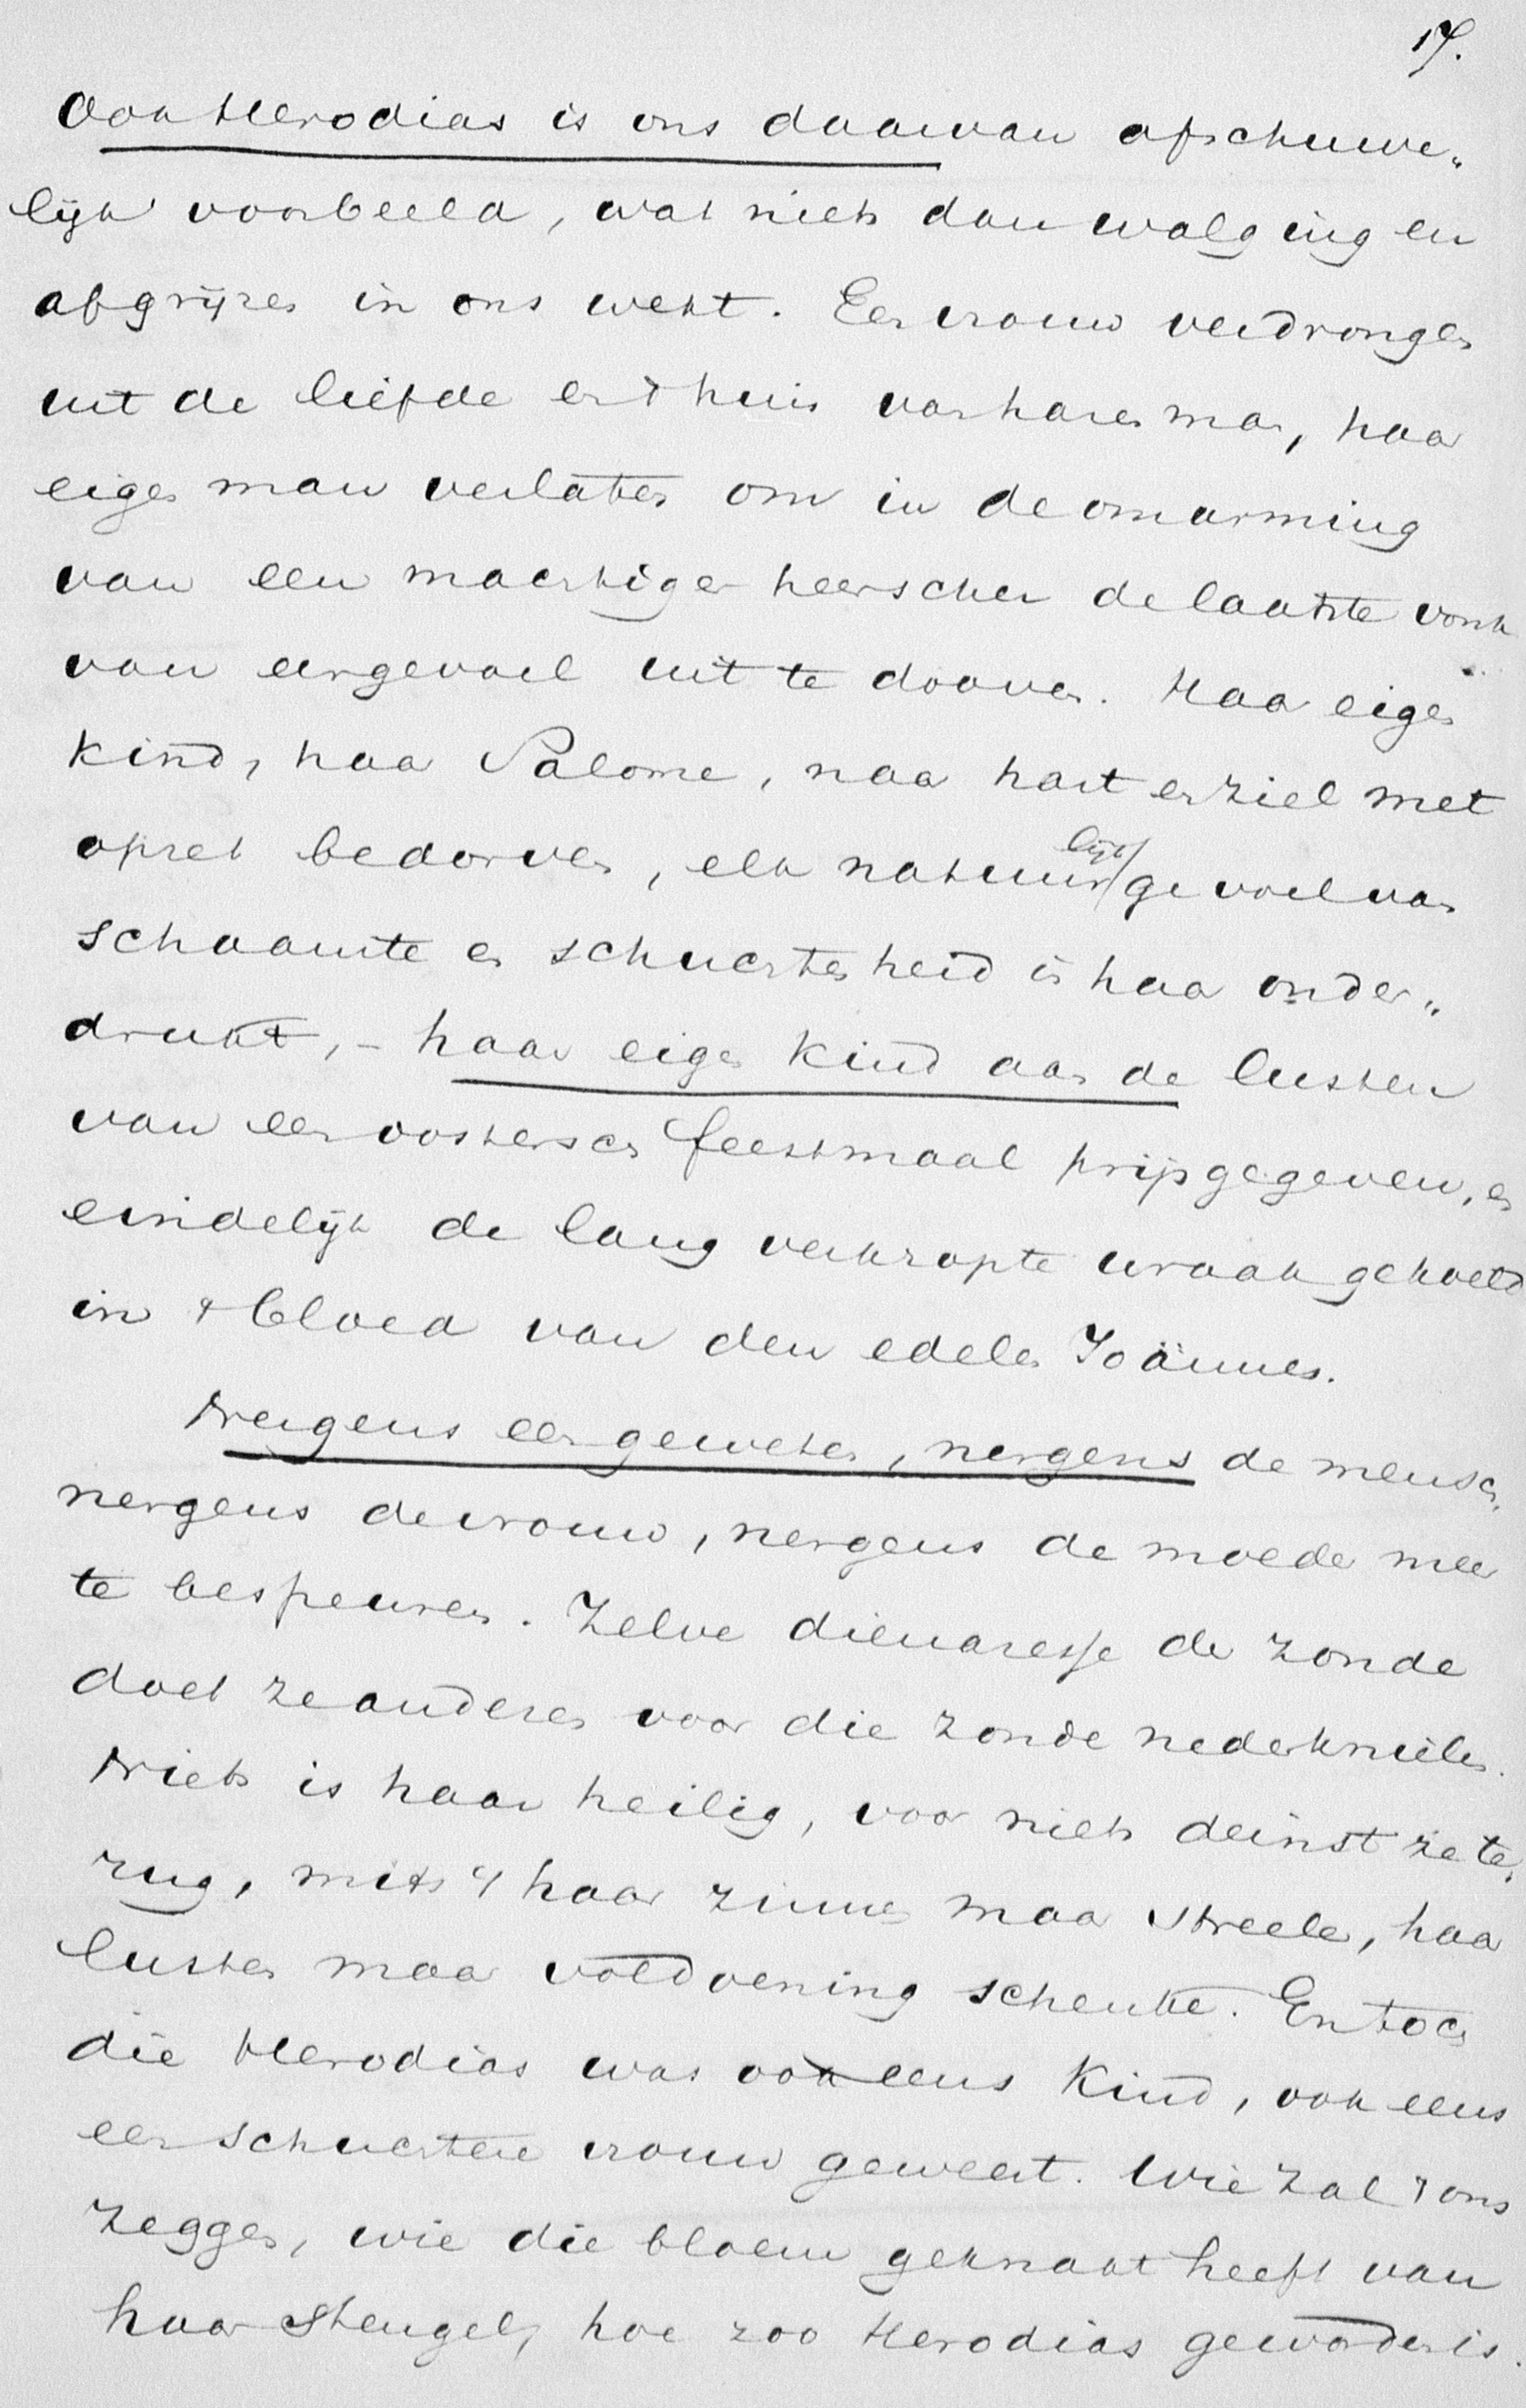 17.
Ook Herodias is ons daarvan afschuwe„
lijk voorbeeld, wat niets dan walging en
afgrijzen in ons wekt. Een vrouw verdrongen
uit de liefde en 't huis van haren man, haar
eigen man verlaten om in de omarming
van een machtiger heerscher de laatste vonk
van eergevoel uit te dooven. Haar eigen
kind, haar Salome, naar hart en ziel met
opzet bedorven, elk natuurlijk gevoel van
schaamte en schuchterheid in haar onder„
drukt, – haar eigen kind aan de lusten
van een oostersch feestmaal prijsgegeven, en
eindelijk de lang verkropte wraak gekoeld
in 't bloed van den edelen Joännes.
Nergens een geweten, nergens de mensch,
nergens de vrouw, nergens de moeder meer
te bespeuren. Zelve dienaresse der zonde
doet ze anderen voor die zonde nederknielen.
Niets is haar heilig, voor niets deinst ze te„
rug, mits 't haar zinnen maar streele, haar
lusten maar voldoening schenke. En toch
die Herodias was ook eens kind, ook eens
een schuchtere vrouw geweest. Wie zal 't ons
zeggen, wie die bloem geknakt heeft van
haar stengel, hoe zoo Herodias geworden is.